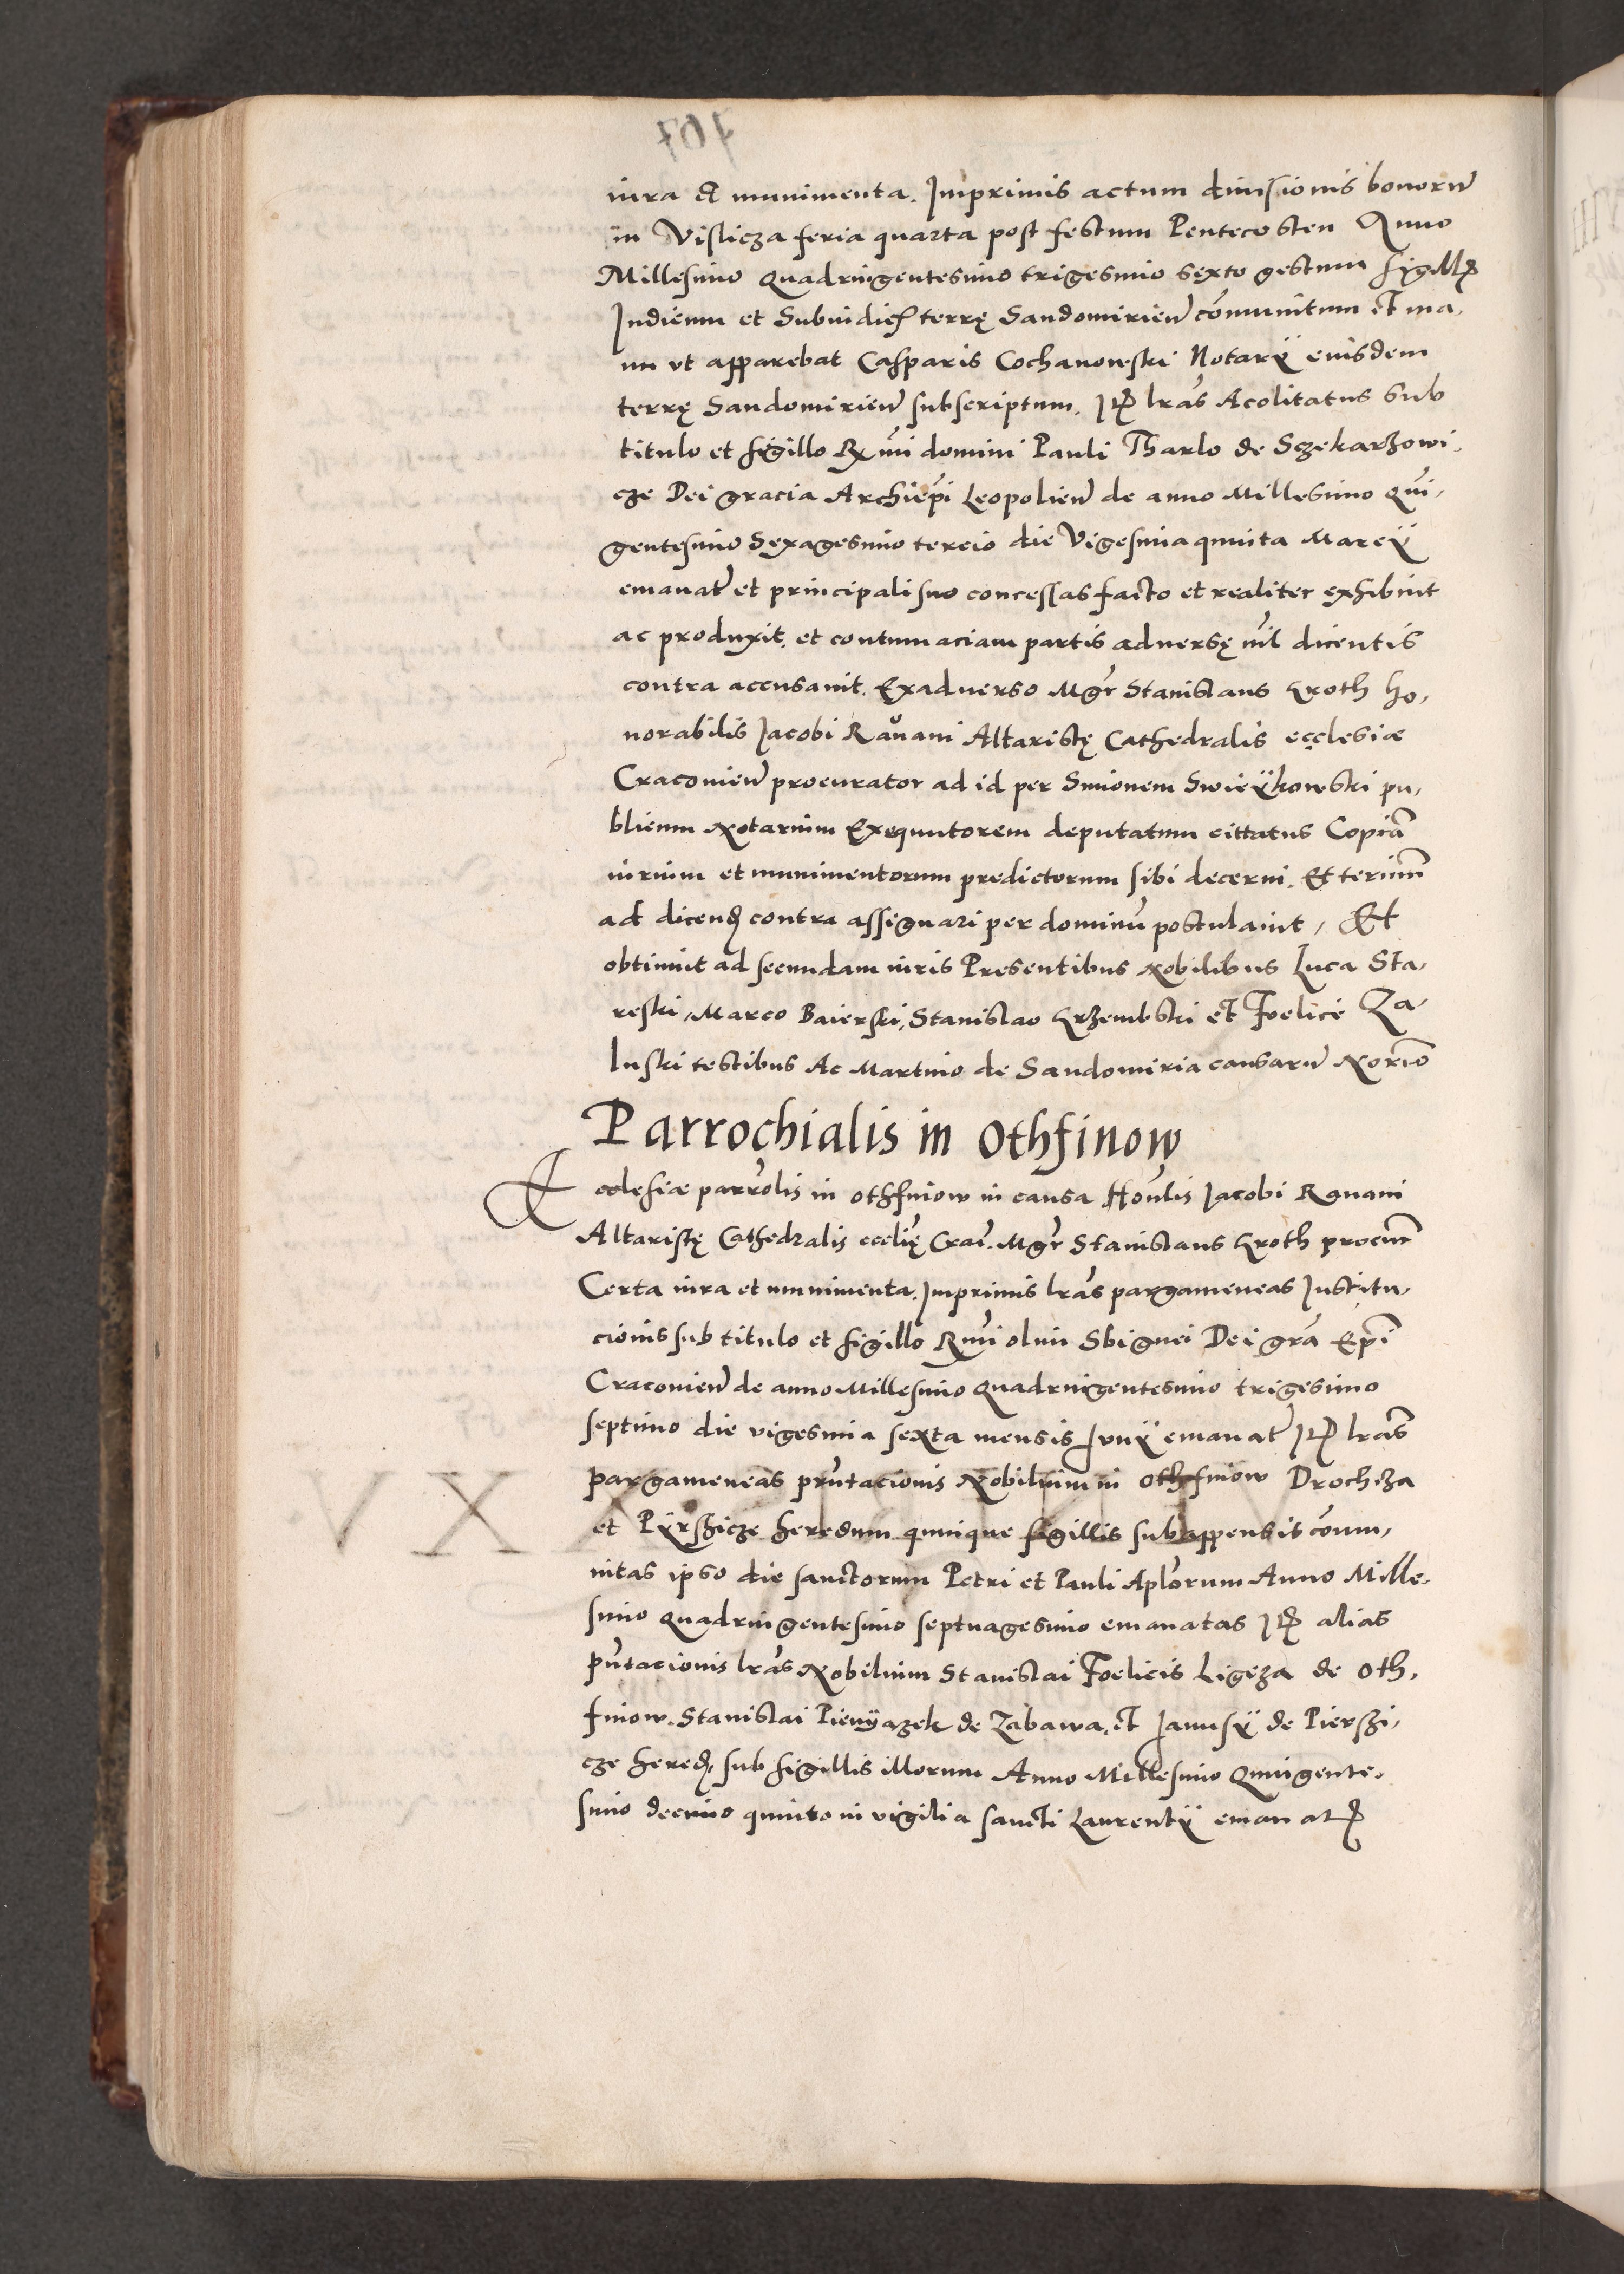 iura et munimenta. Imprimis actum diuisionis bonorum
in Vislicza feria quarta post festum Pentecosten Anno
Millesimo quadringentesimo trigesimo sexto gestum sigill
Iudicum et Subiudic terrę Sandomirien com̄unitum et ma,
nu vt apparebat Casparis Cochanowski Notarÿ eiusdem
terrę Sandomirien subscriptum. Itē lrās Acolitatus sub
titulo et sigillo Rmi domini Pauli Tharlo de Sczekarzowi,
cze Dei gracia Archiepi Leopolien de anno Millesimo qui,
gentesimo Sexagesimo tercio die Vigesimaquinta Marcÿ
emanat et principali suo concessas facto et realiter exhibuit
ac produxit. et contumaciam partis aduersę nil dicentis
contra accusauit. Exaduerso Mgr Stanislaus Kroth ho,
norabilis Iacobi Rauani Altaristę Cathedralis ecclesiæ
Cracouien procurator ad id per Simonem Swieÿkowski pu,
blicum Notarium Exequutorem deputatum cittatus Copiā
iurium et munimentorum predictorum sibi decerni. Et terminū
ad dicend contra assignari per dominū postulauit, Et
obtinuit ad secundam iuris Presentibus Nobilibus Luca Sta,
reski, Marco Baierski, Stanislao Krzembski et Foelice Za
luski testibus Ac Martino de Sandomiria causarū Norio
Parrochialis in Othfinow
Ecclesiæ parrolis in othfinow in causa Honlis Iacobi Rauani
Altaristę Cathedralis ecclię Crac. Mgr Stanislaus Kroth procur
Certa iura et munimenta. Imprimis lrās pargameneas Institu,
cionis sub titulo et sigillo Rmi olim Sbignei Dei grā Epi
Cracouien de anno Millesimo quadringentesimo trigesimo
septimo die vigesima sexta mensis Junÿ emanat Itē lrās
pargameneas prntacionis Nobilium in othfinow Drochza
et Pÿrszicze heredum quinque sigillis subappensis com̄u,
nitas ipso die sanctorum Petri et Pauli Aplorum Anno Mille,
simo quadringentesimo septuagesimo emanatas Itē alias
pntacionis lrās Nobilium Stanislai Foelicis Ligęza de oth,
finow. Stanislai Pienÿazek de Zabawa. et Janusÿ de Pierszi,
cze hered, sub sigillis illorum Anno Millesimo quingente,
simo decimo quinto in vigilia sancti Laurentÿ emanat